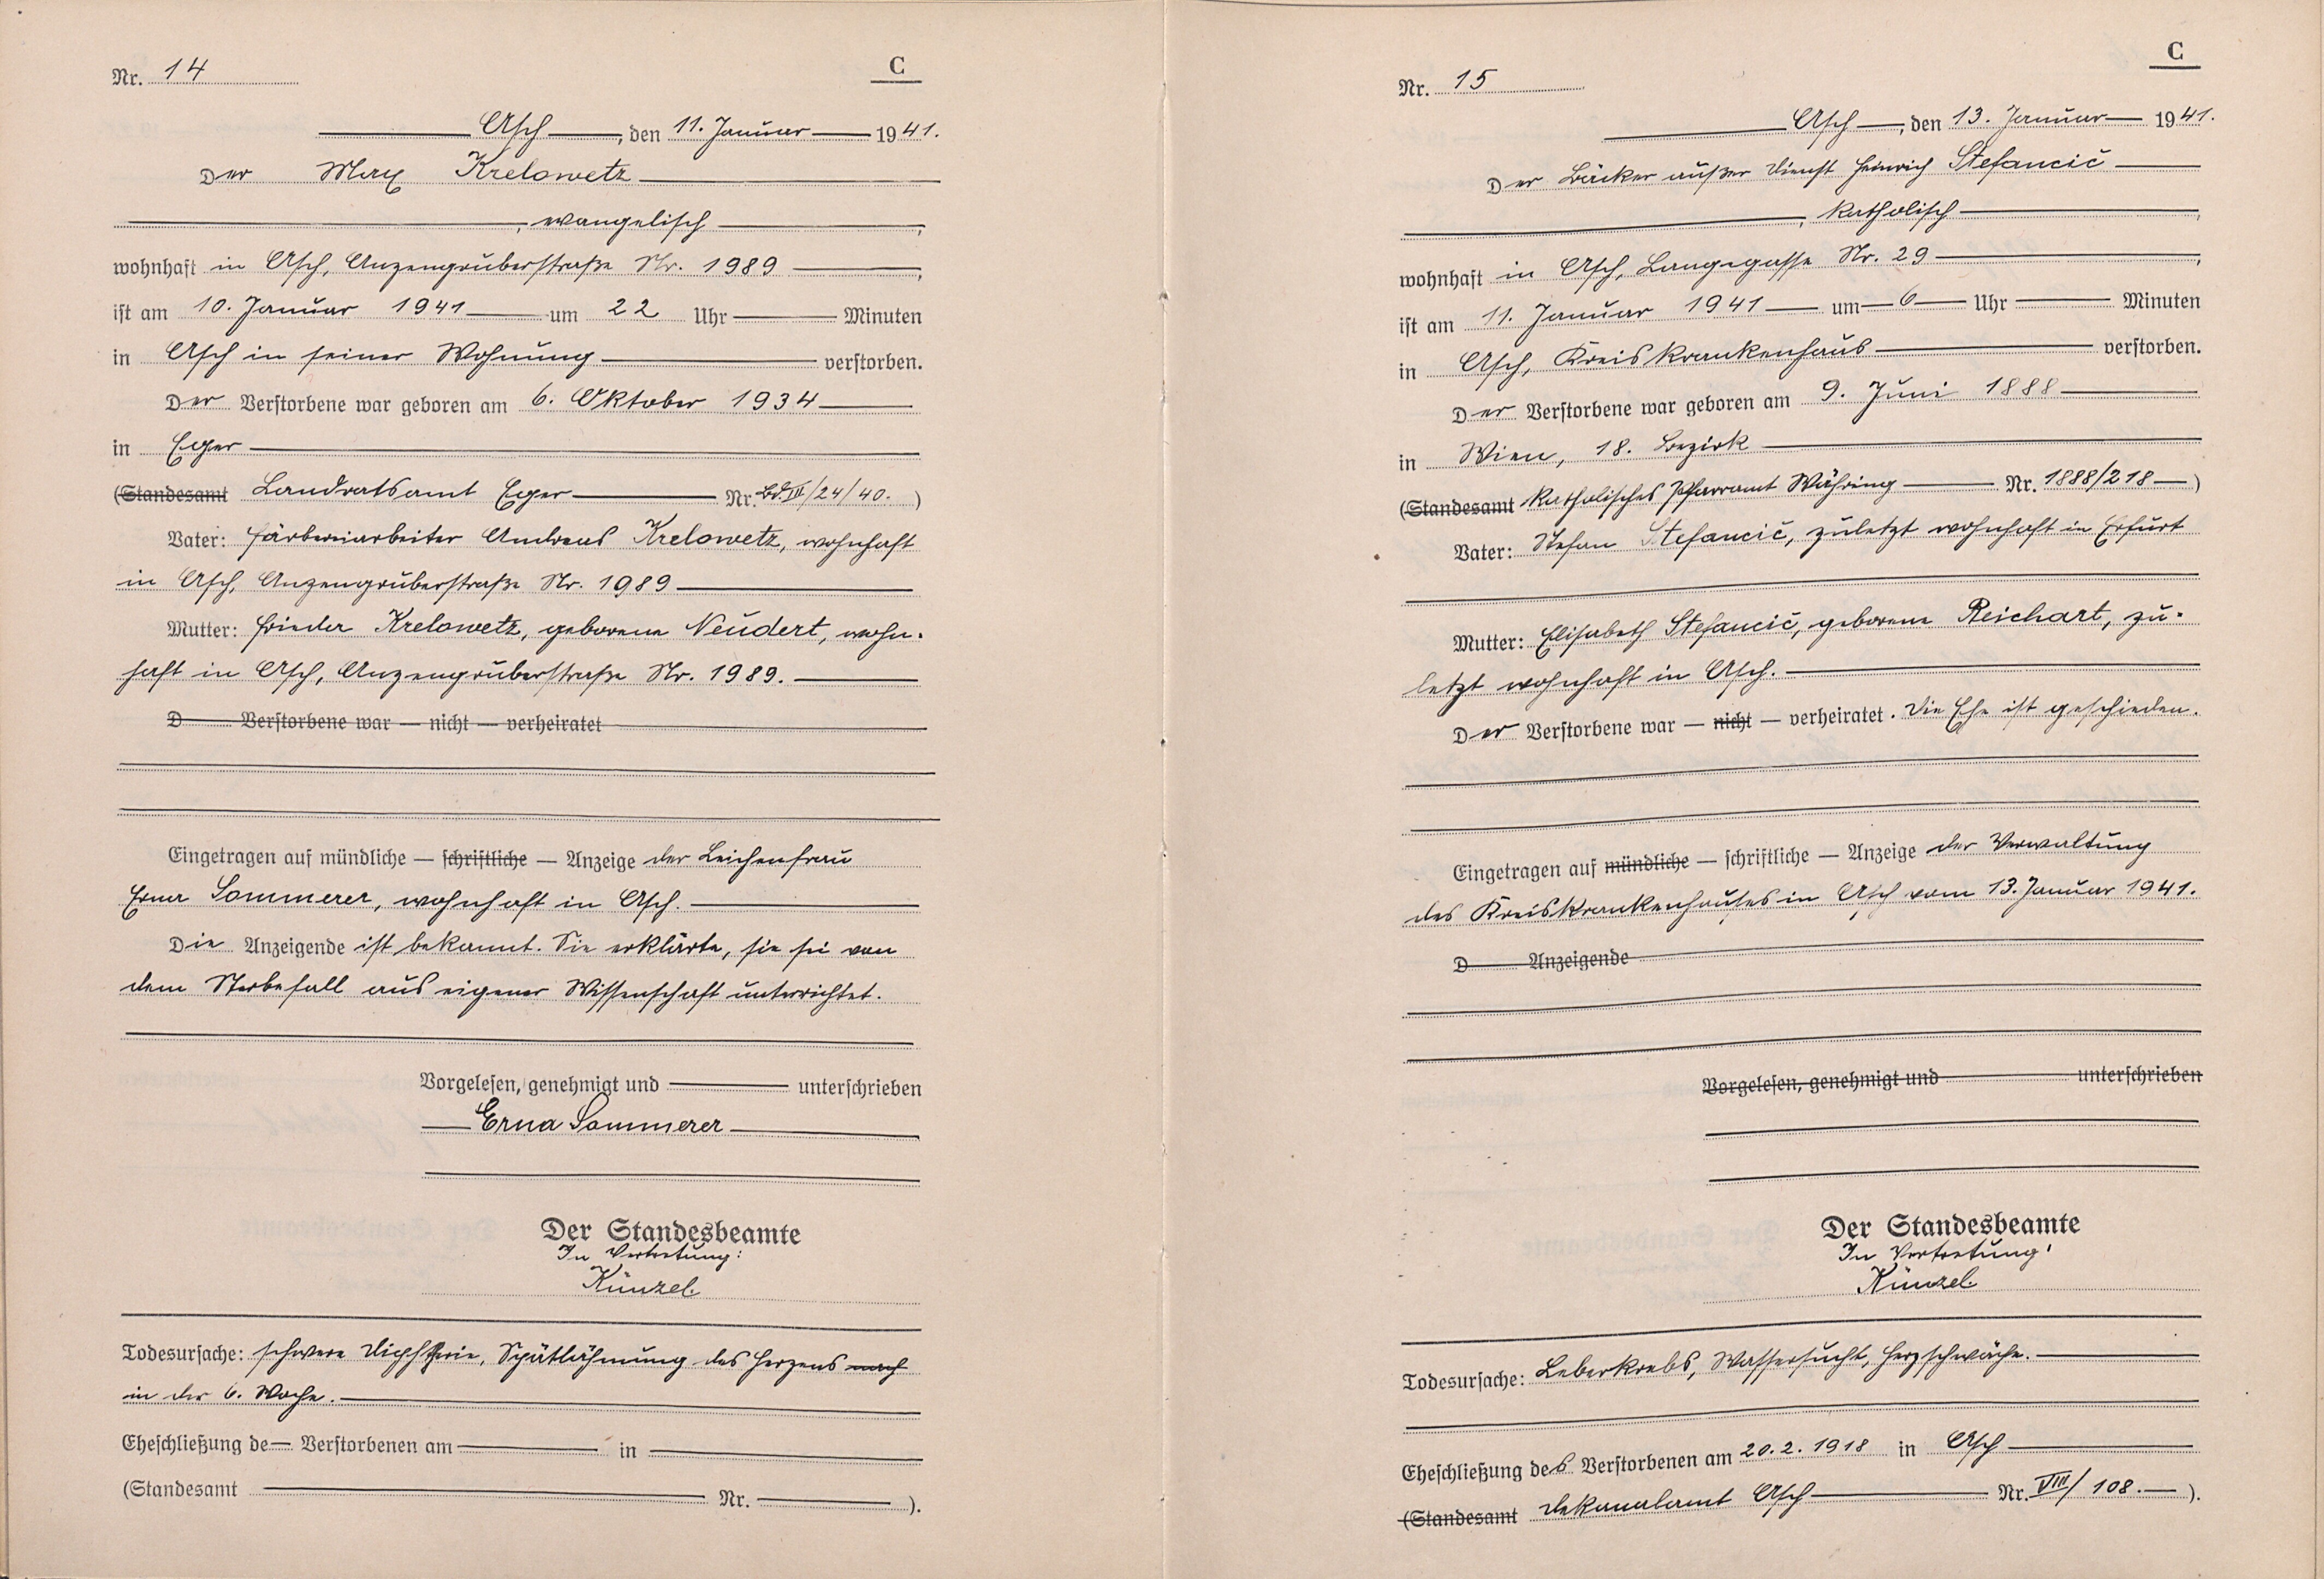 Nr. 14
C
Asch, den 11. Januar 1941.
Der Max Krelowetz
, evangelisch,
wohnhaft in Asch, Anzengruberstraße Nr. 1989,
ist am 10. Januar 1941 um 22 Uhr Minuten
in Asch in seiner Wohnung verstorben.
Der Verstorbene war geboren am 6. Oktober 1934
in Eger
(Standesamt Landratsamt Eger Nr. Bd. III/24/40.)
Vater: Färbereiarbeiter Andreas Krelowetz, wohnhaft
in Asch, Anzengruberstraße Nr. 1989
Mutter: Frieda Krelowetz, geborene Neudert, wohn-
haft in Asch, Anzengruberstraße Nr. 1989.
D Verstorbene war — nicht — verheiratet
Eingetragen auf mündliche — schriftliche — Anzeige der Leichenfrau
Erna Sommerer, wohnhaft in Asch.
Die Anzeigende ist bekannt. Sie erklärte, sie sei von
dem Sterbefall aus eigener Wissenschaft unterrichtet.
Vorgelesen, genehmigt und unterschrieben
Erna Sommerer
Der Standesbeamte
In Vertretung:
Künzel.
Todesursache: schwere Diphtherie, Spätlähmung des Herzens nach
in der 6. Woche.
Eheschließung de Verstorbenen am in
(Standesamt Nr. ).
Nr. 15
C
Asch, den 13. Januar 1941.
Der Bäcker außer Dienst Heinrich Stefancič
, katholisch,
wohnhaft in Asch, Langegasse Nr. 29,
ist am 11. Januar 1941 um 6 Uhr Minuten
in Asch, Kreiskrankenhaus verstorben.
Der Verstorbene war geboren am 9. Juni 1888
in Wien, 18. Bezirk
(Standesamt Katholisches Pfarramt Währing Nr. 1888/218)
Vater: Stefan Stefancič, zuletzt wohnhaft in Erfurt
Mutter: Elisabeth Stefancič, geborene Reichart, zu-
letzt wohnhaft in Asch.
Der Verstorbene war — nicht — verheiratet. Die Ehe ist geschieden.
Eingetragen auf mündliche — schriftliche — Anzeige der Verwaltung
des Kreiskrankenhauses in Asch vom 13. Januar 1941.
D Anzeigende
Vorgelesen, genehmigt und unterschrieben
Der Standesbeamte
In Vertretung:
Künzel.
Todesursache: Leberkrebs, Wassersucht, Herzschwäche.
Eheschließung des Verstorbenen am 20.2.1918 in Asch
(Standesamt Dekanalamt Asch Nr. VIII/108.).